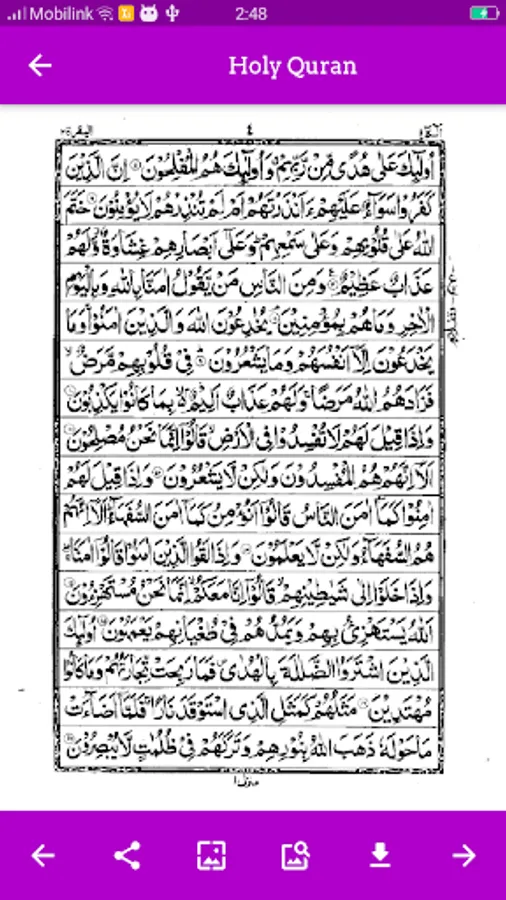 Mobilink 2:48
Holy Quran
البقرة ٢ ٤ الٓمّٓ ١
اُولٰٓئِكَ عَلٰى هُدًى مِّنْ رَّبِّهِمْ وَاُولٰٓئِكَ هُمُ الْمُفْلِحُوْنَ ۝ اِنَّ الَّذِيْنَ
كَفَرُوْا سَوَآءٌ عَلَيْهِمْ ءَاَنْذَرْتَهُمْ اَمْ لَمْ تُنْذِرْهُمْ لَا يُؤْمِنُوْنَ ۝ خَتَمَ
اللّٰهُ عَلٰى قُلُوْبِهِمْ وَعَلٰى سَمْعِهِمْ وَعَلٰٓى اَبْصَارِهِمْ غِشَاوَةٌ وَّلَهُمْ
عَذَابٌ عَظِيْمٌ ۝ وَمِنَ النَّاسِ مَنْ يَّقُوْلُ اٰمَنَّا بِاللّٰهِ وَبِالْيَوْمِ
الْاٰخِرِ وَمَا هُمْ بِمُؤْمِنِيْنَ ۝ يُخٰدِعُوْنَ اللّٰهَ وَالَّذِيْنَ اٰمَنُوْا وَمَا
يَخْدَعُوْنَ اِلَّآ اَنْفُسَهُمْ وَمَا يَشْعُرُوْنَ ۝ فِيْ قُلُوْبِهِمْ مَّرَضٌ
فَزَادَهُمُ اللّٰهُ مَرَضًا وَلَهُمْ عَذَابٌ اَلِيْمٌۢ بِمَا كَانُوْا يَكْذِبُوْنَ ۝
وَاِذَا قِيْلَ لَهُمْ لَا تُفْسِدُوْا فِى الْاَرْضِ قَالُوْٓا اِنَّمَا نَحْنُ مُصْلِحُوْنَ ۝
اَلَآ اِنَّهُمْ هُمُ الْمُفْسِدُوْنَ وَلٰكِنْ لَّا يَشْعُرُوْنَ ۝ وَاِذَا قِيْلَ لَهُمْ
اٰمِنُوْا كَمَآ اٰمَنَ النَّاسُ قَالُوْٓا اَنُؤْمِنُ كَمَآ اٰمَنَ السُّفَهَآءُ اَلَآ اِنَّهُمْ
هُمُ السُّفَهَآءُ وَلٰكِنْ لَّا يَعْلَمُوْنَ ۝ وَاِذَا لَقُوا الَّذِيْنَ اٰمَنُوْا قَالُوْٓا اٰمَنَّا
وَاِذَا خَلَوْا اِلٰى شَيٰطِيْنِهِمْ قَالُوْٓا اِنَّا مَعَكُمْ اِنَّمَا نَحْنُ مُسْتَهْزِءُوْنَ ۝
اَللّٰهُ يَسْتَهْزِئُ بِهِمْ وَيَمُدُّهُمْ فِيْ طُغْيَانِهِمْ يَعْمَهُوْنَ ۝ اُولٰٓئِكَ
الَّذِيْنَ اشْتَرَوُا الضَّلٰلَةَ بِالْهُدٰى فَمَا رَبِحَتْ تِّجَارَتُهُمْ وَمَا كَانُوْا
مُهْتَدِيْنَ ۝ مَثَلُهُمْ كَمَثَلِ الَّذِى اسْتَوْقَدَ نَارًا فَلَمَّآ اَضَآءَتْ
مَا حَوْلَهٗ ذَهَبَ اللّٰهُ بِنُوْرِهِمْ وَتَرَكَهُمْ فِيْ ظُلُمٰتٍ لَّا يُبْصِرُوْنَ ۝
منزل ١